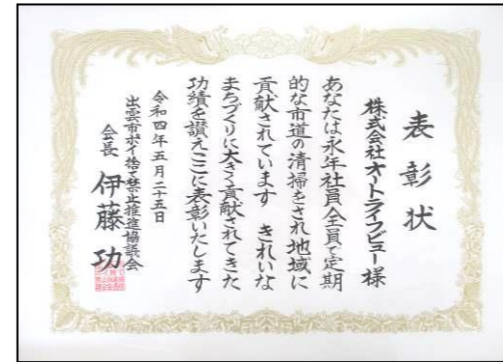 表彰状
株式会社オートライフビュー様
あなたは永年社員全員で定期
的な市道の清掃をされ地域に
貢献されています きれいな
まちづくりに大きく貢献されてきた
功績を讃えここに表彰いたします
令和四年五月二十五日
出雲市ポイ捨て禁止推進協議会
会長 伊藤功